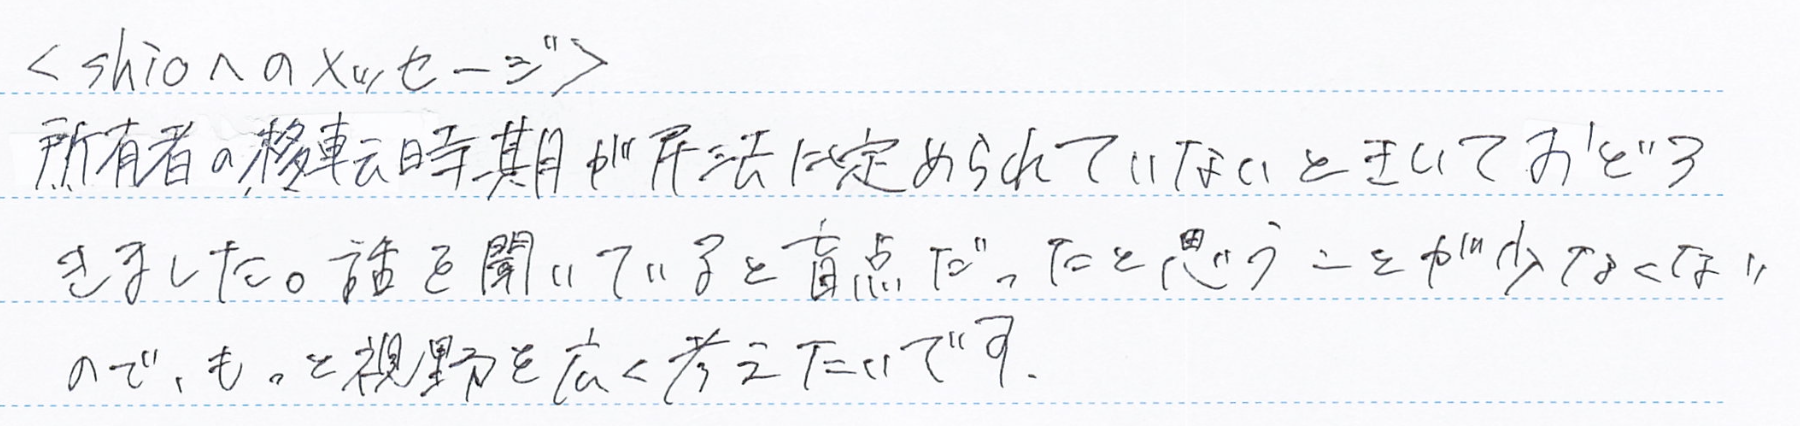 <shioへのメッセージ>
所有者の移転時期が民法に定められていないときいておどろ
きました。話を聞いていると盲点だったと思うことが少なくない
ので、もっと視野を広く考えたいです.